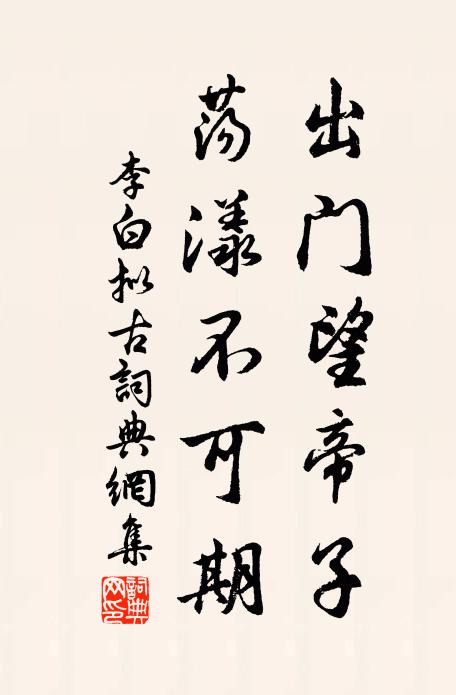 出门望帝子
荡漾不可期
李白拟古詞典網集
詞典网印